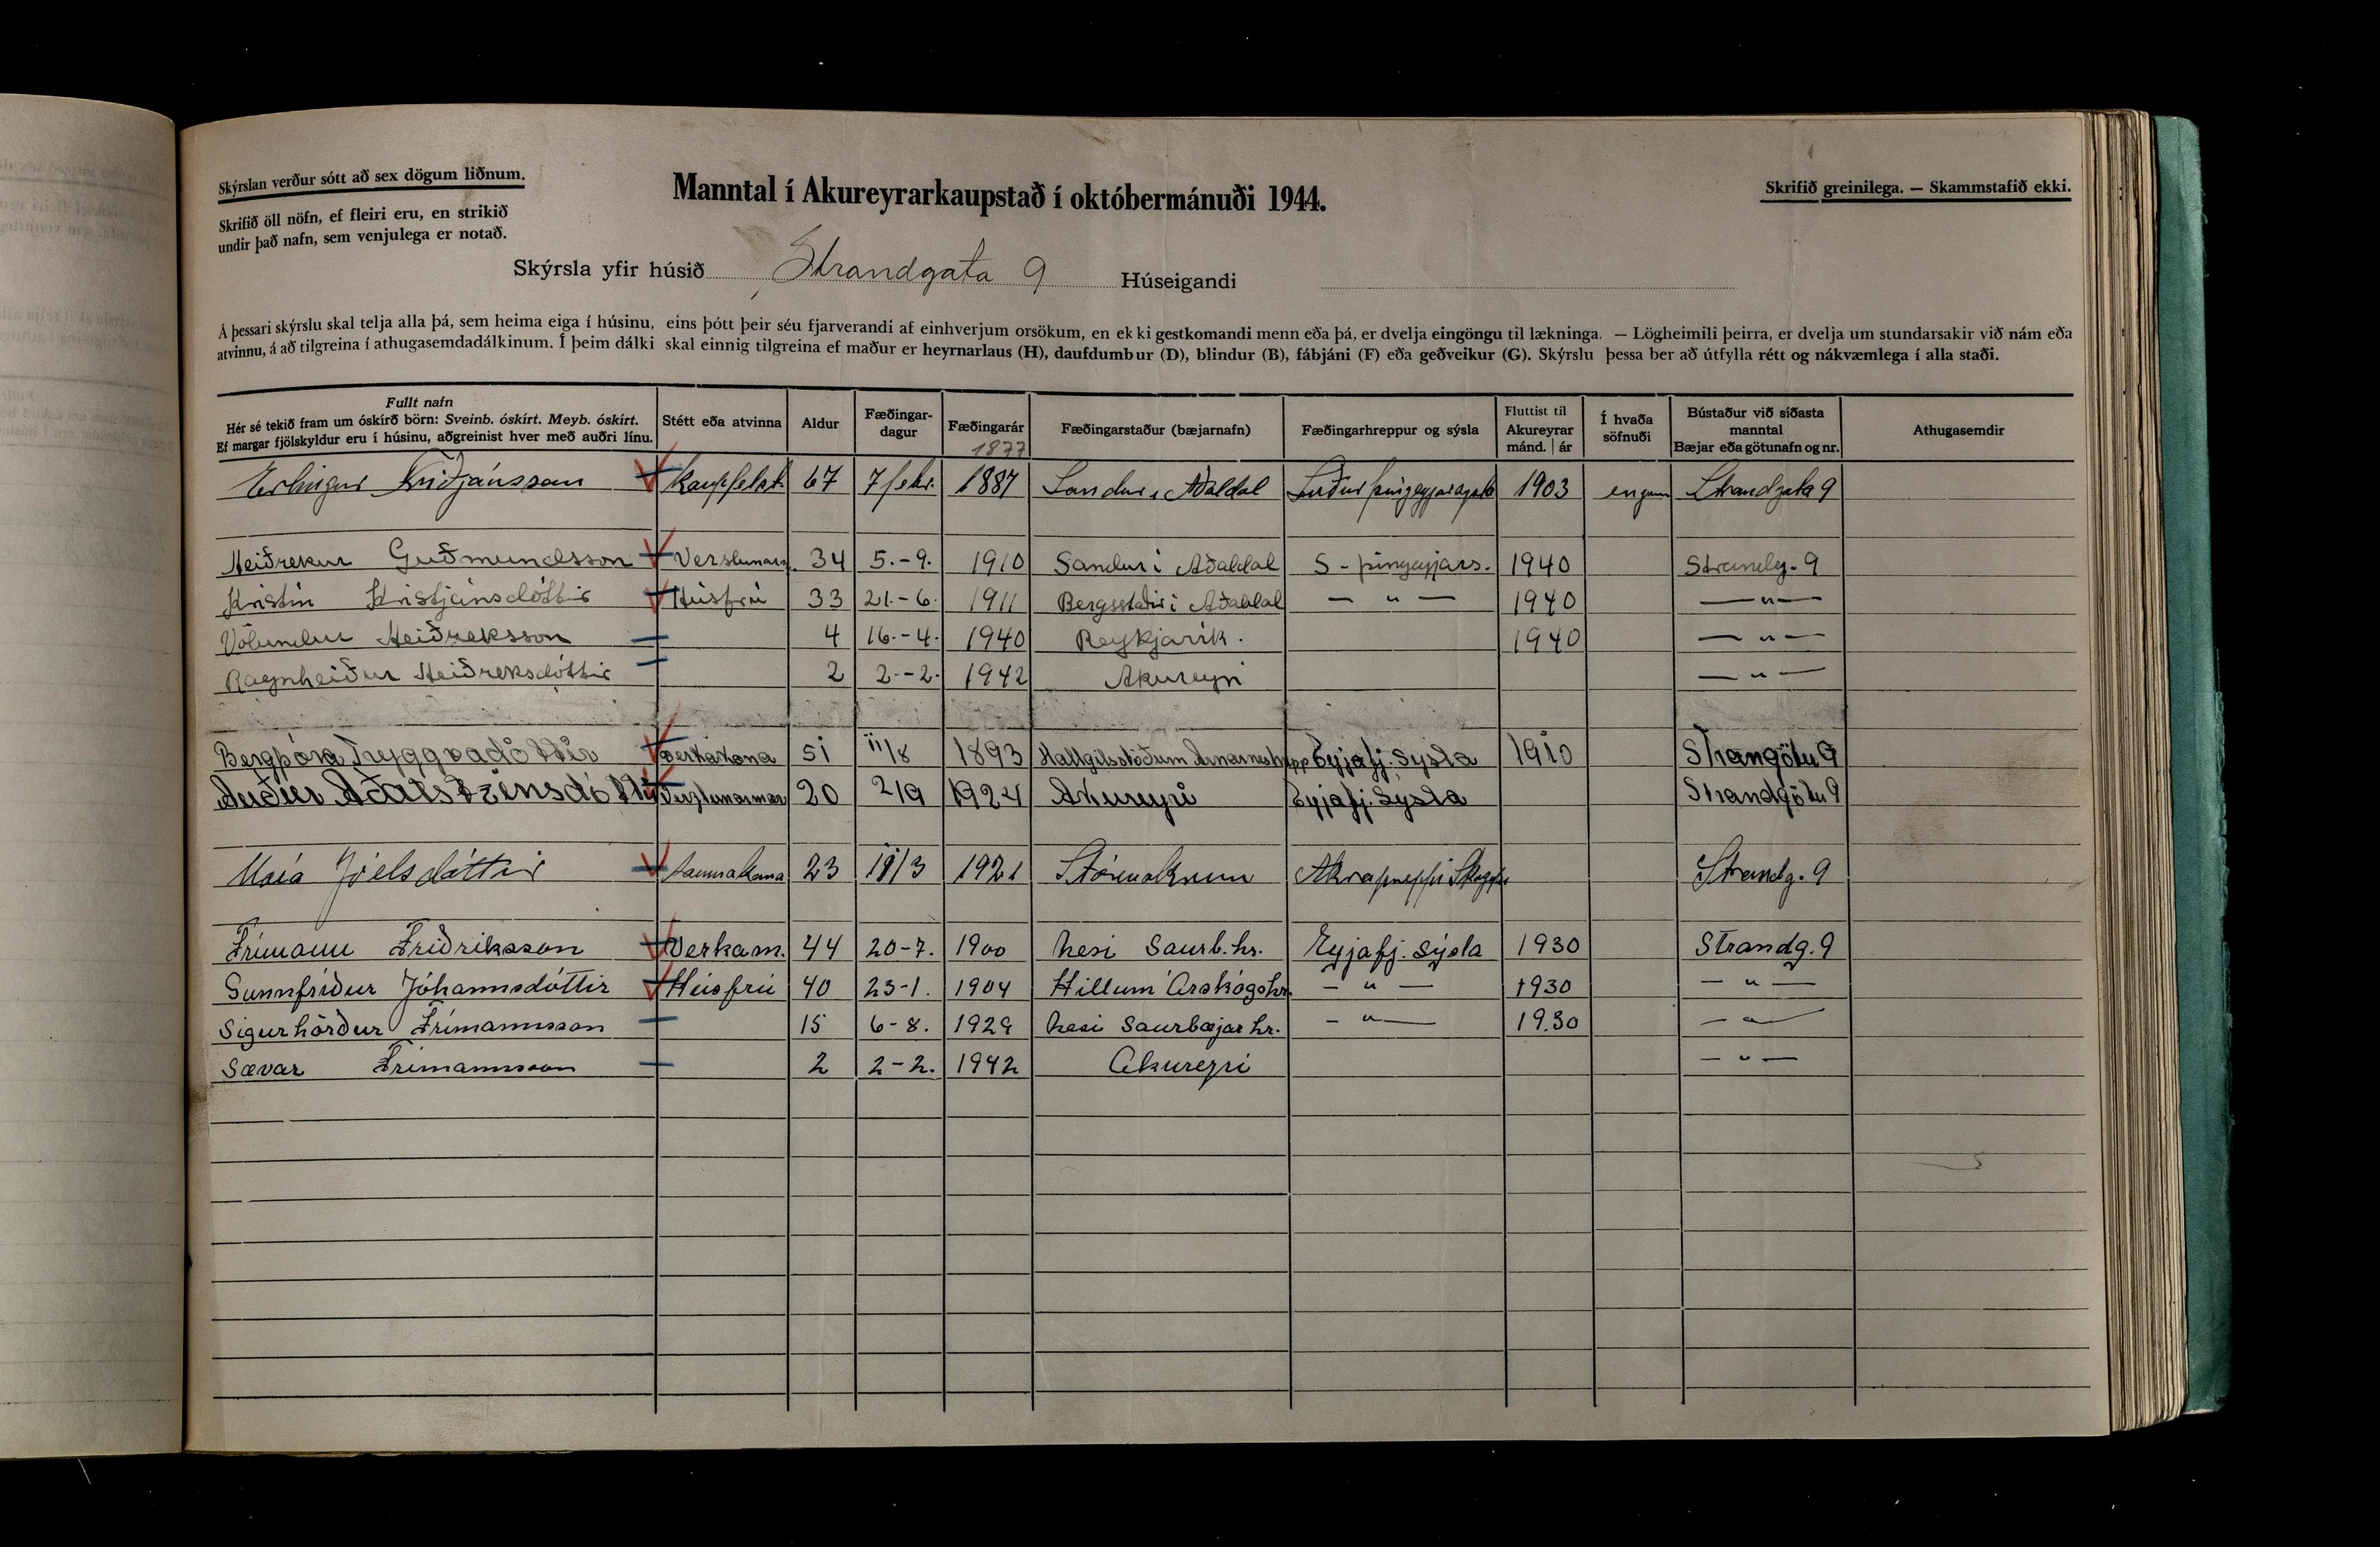 Skýrslan verður sótt að sex dögum liðnum.
Manntal í Akureyrarkaupstað í októbermánuði 1944.
Skrifið greinilega. — Skammstafið ekki.
Skrifið öll nöfn, ef fleiri eru, en strikið
undir það nafn, sem venjulega er notað.
Skýrsla yfir húsið Strandgata 9 Húseigandi
Á þessari skýrslu skal telja alla þá, sem heima eiga í húsinu, eins þótt þeir séu fjarverandi af einhverjum orsökum, en ekki gestkomandi menn eða þá, er dvelja eingöngu til lækninga. — Lögheimili þeirra, er dvelja um stundarsakir við nám eða
atvinnu, á að tilgreina í athugasemdadálkinum. Í þeim dálki skal einnig tilgreina ef maður er heyrnarlaus (H), daufdumbur (D), blindur (B), fábjáni (F) eða geðveikur (G). Skýrslu þessa ber að útfylla rétt og nákvæmlega í alla staði.
Fullt nafn
Hér sé tekið fram um óskírð börn: Sveinb. óskírt. Meyb. óskírt.
Ef margar fjölskyldur eru í húsinu, aðgreinist hver með auðri línu.
Stétt eða atvinna
Aldur
Fæðingar-
dagur
Fæðingarár
Fæðingarstaður (bæjarnafn)
Fæðingarhreppur og sýsla
Fluttist til
Akureyrar
mánd. | ár
Í hvaða
söfnuði
Bústaður við síðasta
manntal
Bæjar eða götunafn og nr.
Athugasemdir
1877
Erlingur Friðjónsson 67 7 febr. 1887 Sandur í Aðaldal Suður þingeyjarsýsla 1903 engum Strandgata 9
Heiðrekur Guðmundsson Verslunarm. 34 5.-9. 1910 Sandur í Aðaldal S-þingeyjars. 1940 Strandg. 9
Kristín Kristjánsdóttir Húsfrú 33 21.-6. 1911 Bergsstaðir í Aðaldal — " — 1940 — " —
Völundur Heiðreksson 4 16.-4. 1940 Reykjavík. 1940 — " —
Ragnheiður Heiðreksdóttir 2 2.-2. 1942 Akureyri — " —
Bergþóra Tryggvadóttir verkakona 51 11/8 1893 Hallgilsstöðum Arnarneshrepp Eyjafj. Sysla 1910 Strangötu 9
Auður Aðalsteinsdóttir 20 2/9 1924 Akureyri Eyjafj. Sysla Strandgötu 9
María Jóelsdóttir saumakona 23 11/3 1921 Stóruökrum Akrahreppi Skagfj. Strandg. 9
Frímann Friðriksson Verkam. 44 20-7. 1900 Nesi Saurb.hr. Eyjafj. sýsla 1930 Strandg. 9
Gunnfríður Jóhannsdóttir Húsfrú 40 23-1. 1904 Hillum Árskógshr. — " — 1930 — " —
Sigurhörður Frímannsson 15 6-8. 1929 Nesi Saurbæjarhr. — " — 19.30 — " —
Sævar Frímannsson 2 2-2. 1942 Akureyri — " —